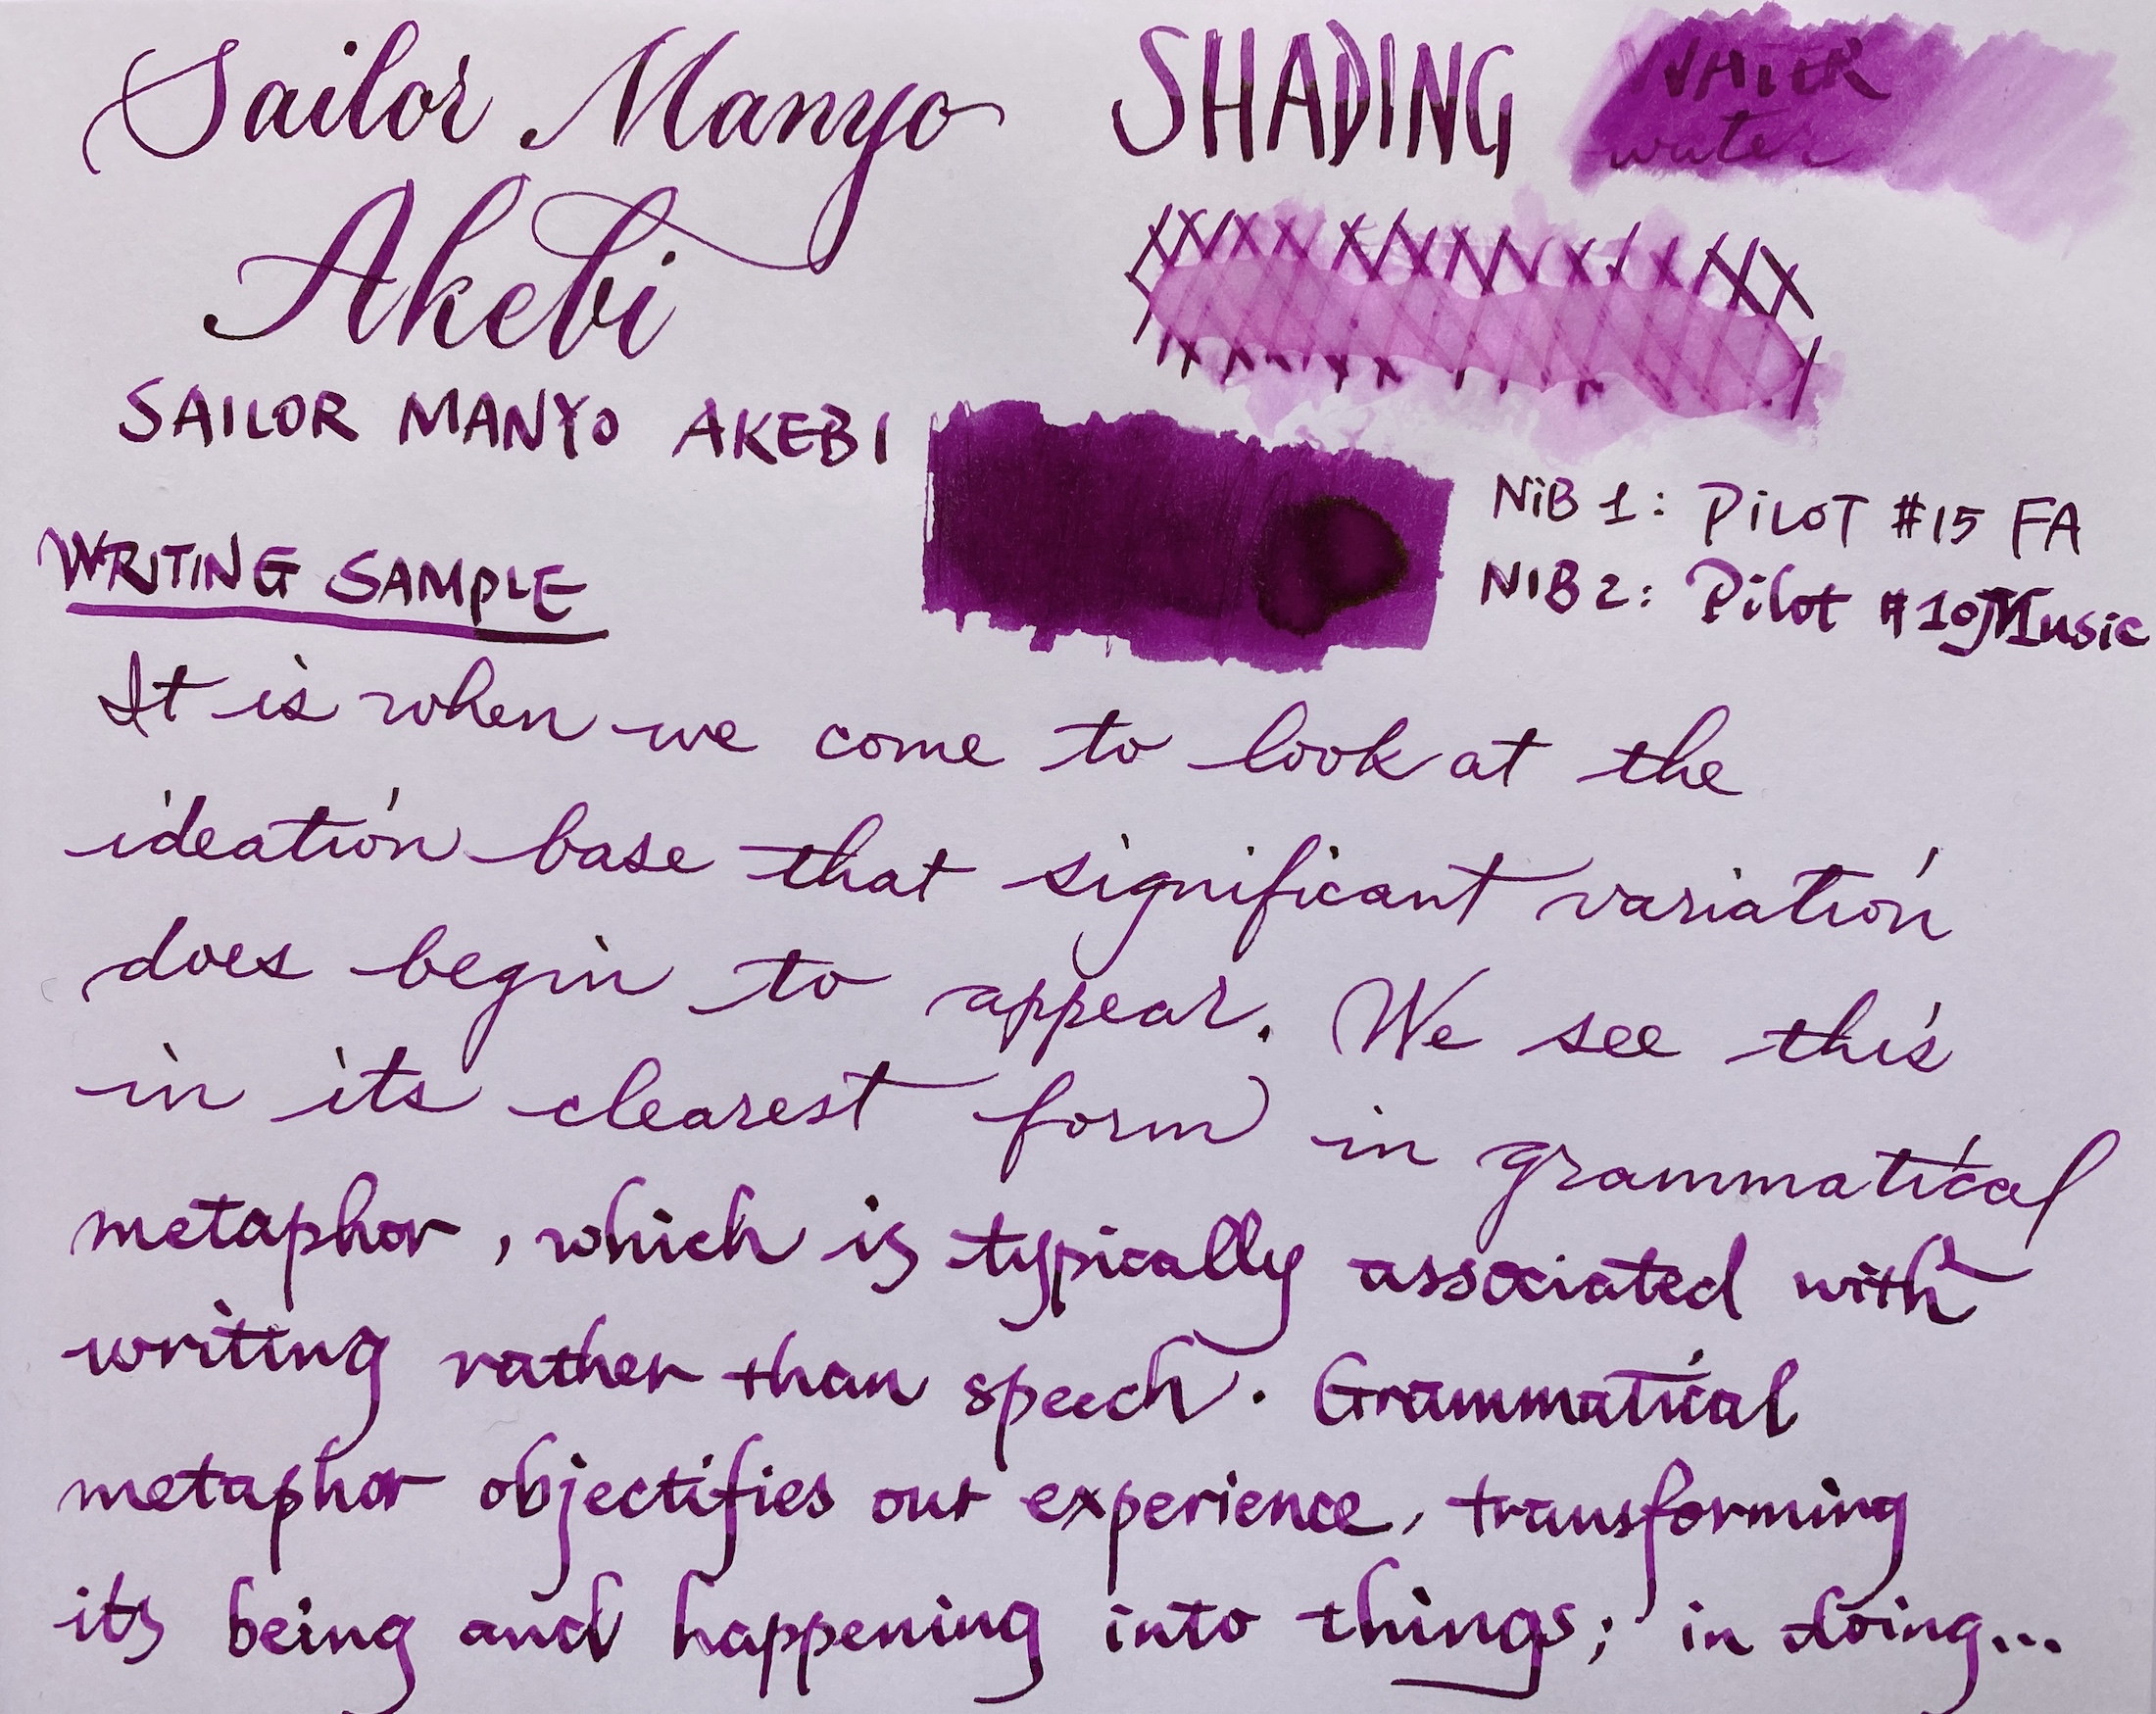 Sailor Manyo
Akebi
SHADING
WATER
water
SAILOR MANYO AKEBI
NiB 1: PiLOT #15 FA
NIB 2: Pilot #10 Music
WRITING SAMPLE
It is when we come to look at the
ideation base that significant variation
does begin to appear. We see this
in its clearest form in grammatical
metaphor, which is typically associated with
writing rather than speech. Grammatical
metaphor objectifies our experience, transforming
its being and happening into things; in doing...